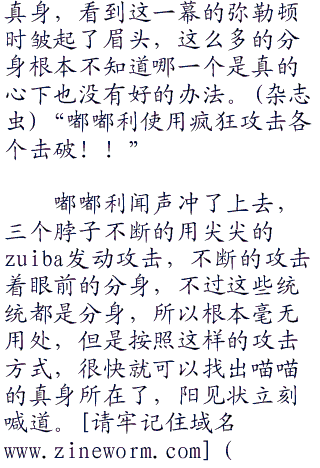 真身，看到这一幕的弥勒顿
时皱起了眉头，这么多的分
身根本不知道哪一个是真的
心下也没有好的办法。(杂志
虫)“嘟嘟利使用疯狂攻击各
个击破！！”
嘟嘟利闻声冲了上去，
三个脖子不断的用尖尖的
zuiba发动攻击，不断的攻击
着眼前的分身，不过这些统
统都是分身，所以根本毫无
用处，但是按照这样的攻击
方式，很快就可以找出喵喵
的真身所在了，阳见状立刻
喊道。[请牢记住域名
www.zineworm.com] (